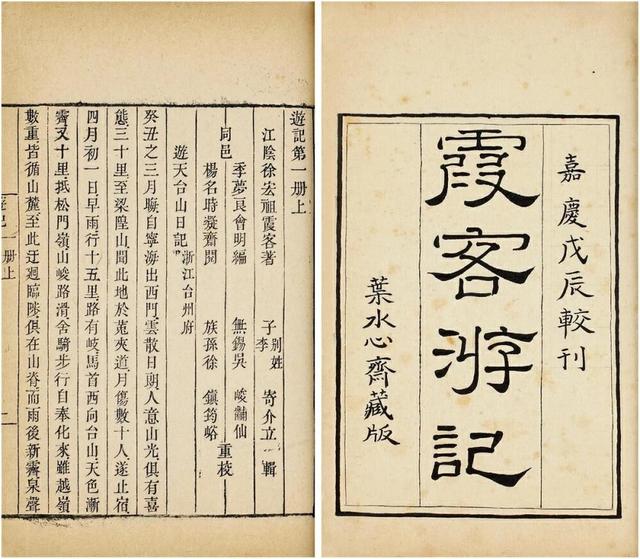 嘉慶戊辰較刊
霞客游記
葉水心齋藏版
遊記第一冊上
江陰徐宏祖霞客著 子李別姓寄介立輯
季夢良會明編 無錫吳峻黼仙
同邑 重校
楊名時凝齋閱 族孫徐鎮筠峪
遊天台山日記 浙江台州府
癸丑之三月晦自寧海出西門雲散日朗人意山光俱有喜
態三十里至梁隍山聞此地於菟夾道月傷數十人遂止宿
四月初一日早雨行十五里路有岐馬首西向台山天色漸
霽又十里抵松門嶺山峻路滑舍騎步行自奉化來雖越嶺
數重皆循山麓至此迂迴臨陟俱在山脊而雨後新霽泉聲
遊記 一冊上 一